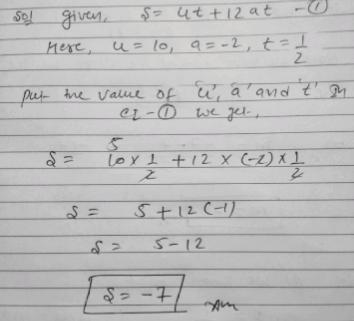 Sol given, S = ut + 12 at - ①
Here, u = 10, a = -2, t = 1/2
put the value of 'u', 'a' and 't' in
eq - ① we get,
S = 10 × 1/2 + 12 × (-2) × 1/2
5
S = 5 + 12 (-1)
S = 5 - 12
S = -7 Ans